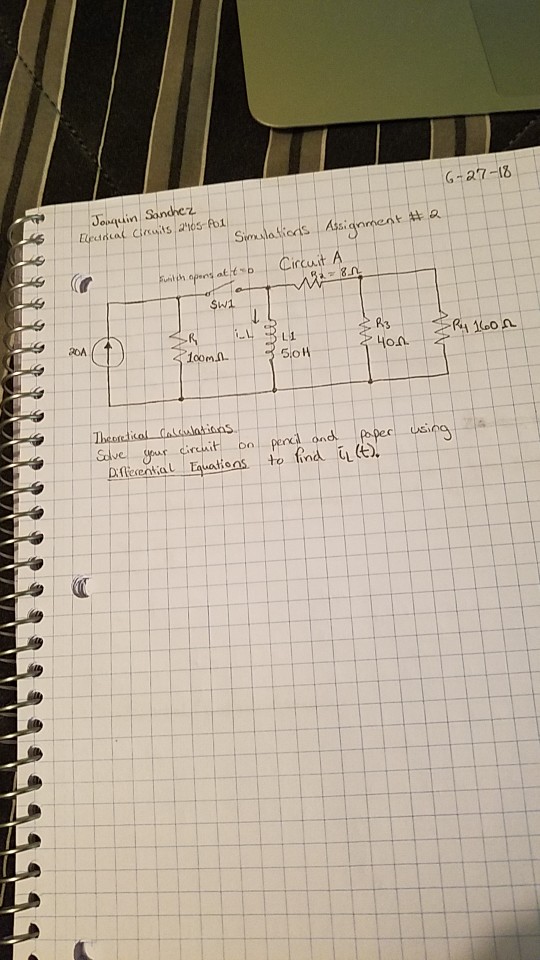 6-27-18
Joaquin Sanchez
Electrical Circuits 2405-P01
Simulations Assignment # 2
Circuit A
Switch opens at t=0
SW1
R2 = 8Ω
20A
R1
100mΩ
i_L
L1
5.0H
R3
40Ω
R4 160Ω
Theoretical Calculations
Solve your circuit on pencil and paper using
Differential Equations to find iL(t).